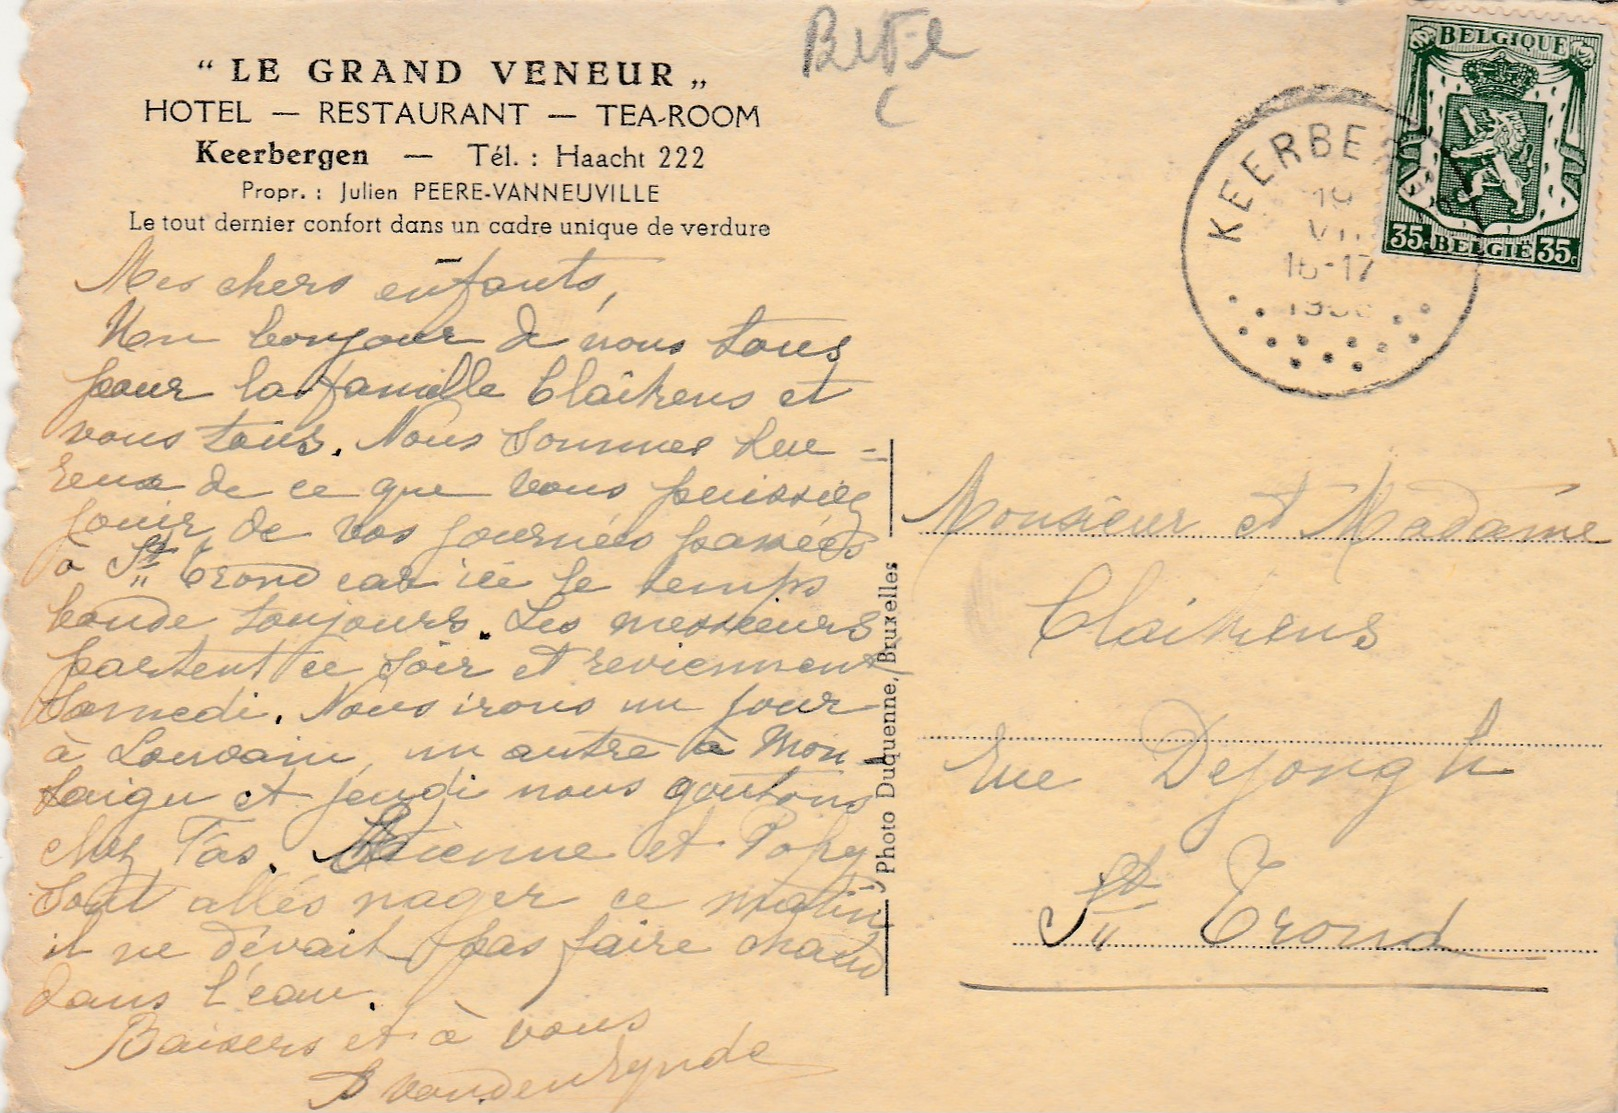 “ LE GRAND VENEUR „
HOTEL — RESTAURANT — TEA-ROOM
Keerbergen — Tél. : Haacht 222
Propr. : Julien PEERE-VANNEUVILLE
Le tout dernier confort dans un cadre unique de verdure
Mes chers enfants,
Un bonjour de nous tous
pour la famille Claikens et
vous tous. Nous sommes heu =
reux de ce que vous puissiez
jouir de vos journées passées
à St Trond car ici le temps
boude toujours. Les messieurs
partent ce soir et reviennent
Samedi. Nous irons un jour
à Louvain, un autre à Mon-
taigu et jeudi nous goutons
chez Tas. Etienne et Popy
sont allés nager ce matin,
il ne dévait pas faire chaud
dans l'eau.
Baisers et à vous
VandenEynde
Photo Duquenne, Bruxelles
BELGIQUE
35c BELGIE 35c
KEERBERGEN
19
VII
16-17
Monsieur et Madame
Claikens
rue Dejongh
St Trond